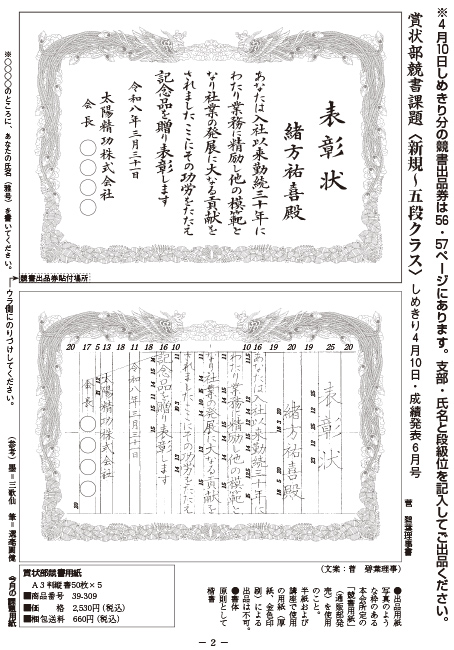 ※4月10日しめきり分の競書出品券は56・57ページにあります。支部・氏名と段級位を記入してご出品ください。
賞状部競書課題〈新規～五段クラス〉しめきり4月10日・成績発表6月号
菅　碧葉理事書
表彰状
緒方祐喜殿
あなたは入社以来勤続三十年に
わたり業務に精励し他の模範と
なり社業の発展に大なる貢献を
されましたここにその功労をたたえ
記念品を贈り表彰します
令和八年三月三十一日
太陽精功株式会社
会長〇〇〇〇
※〇〇〇〇のところに、あなたの氏名（雅号）を書いてください。
競書出品券貼付場所
ウラ側にのりづけしてください。
20 17 5 13 18 11 10 16 10 16 19 20 19 25 20
表彰状
緒方祐喜殿
あなたは入社以来勤続三十年に
わたり業務に精励し他の模範と
なり社業の発展に大なる貢献を
されましたここにその功労をたたえ
記念品を贈り表彰します
令和八年三月三十一日
太陽精功株式会社
会長〇〇〇〇
（文案：菅　碧葉理事）
●出品用紙
写真のよう
な枠のある
本会所定の
「競書用紙」
（通販部発
売）を使用
のこと。
半紙および
講座で使用
の用紙（厚
紙、金色印
刷）による
出品は不可。
●書体
原則として
楷書
（参考）墨＝三歌仙
今月の競書用紙
賞状部競書用紙
A3判縦書50枚×5
■商品番号　39-309
■価　　格　2,530円（税込）
■梱包送料　660円（税込）
－ 2 －